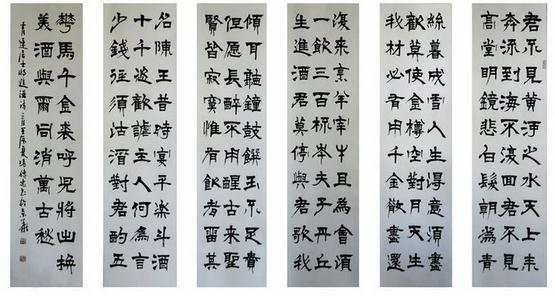 君不見黃河之水天上来
奔流到海不復回君不見
高堂明鏡悲白髮朝為青
絲暮成雪人生得意須盡
歡莫使金樽空對月天生
我材必有用千金散盡還
復来烹羊宰牛且為會須
一飲三百杯岑夫子丹丘
生進酒君莫停與君歌我
傾耳聽鐘鼓饌玉不足貴
但愿長醉不用醒古来聖
賢皆寂寞惟有飲者留其
名陳王昔時宴平樂斗酒
十千恣歡謔主人何為言
少錢徑須沽酒對君酌五
花馬千金裘呼兒將出換
美酒與爾同消萬古愁